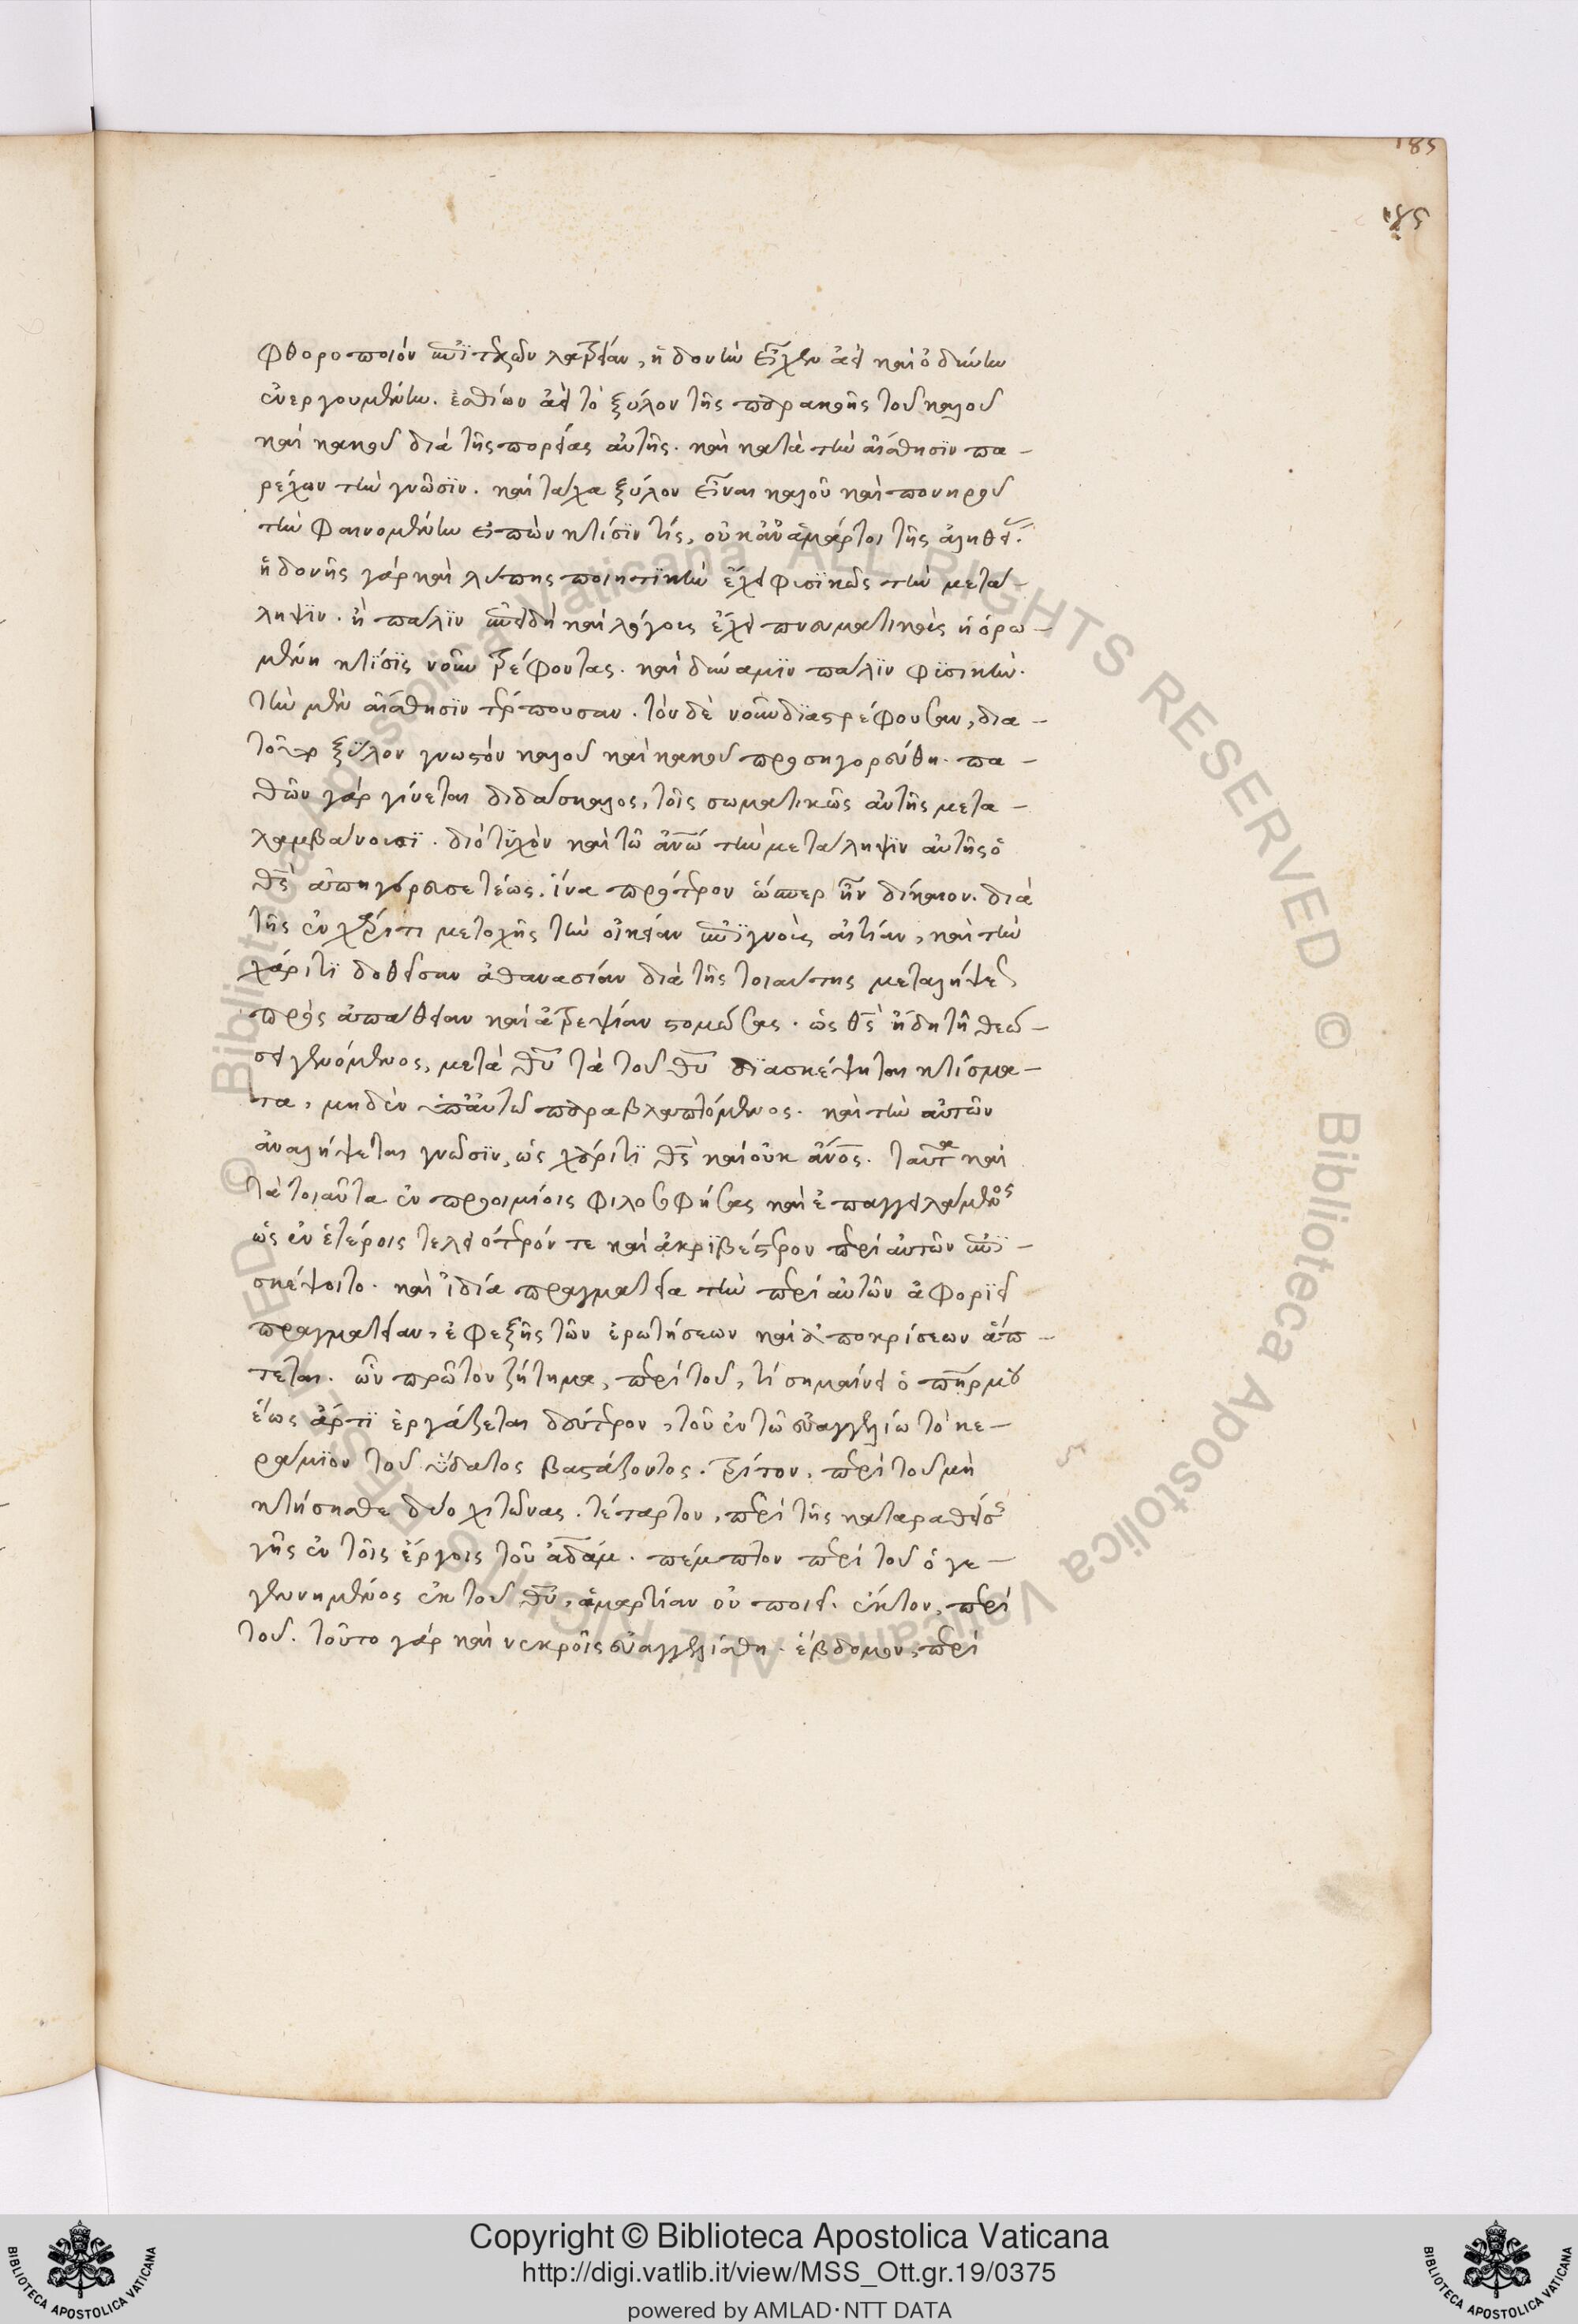 185
185
φθοροποιὸν ἐπιτάζων λατρείαν, ἡδονὴν εἶχεν ἀεὶ καὶ ὀδύνην
ἐνεργουμένην. ἐσθίων ἀεὶ τὸ ξύλον τῆς παρακοῆς τοῦ καλοῦ
καὶ κακοῦ διὰ τῆς πορείας αὐτῆς. καὶ κατὰ τὴν αἴσθησιν πα-
ρέχων τὴν γνῶσϊν. καὶ τάχα ξύλον εἶναι καλοῦ καὶ πονηροῦ
τὴν φαινομένην εἰπὼν κτίσϊν τίς, οὐκ ἂν ἁμάρτοι τῆς ἀληθεί.
ἡδονῆς γάρ καὶ λύπης ποιητϊκὴν ἔχει φυσϊκῶς τὴν μετά-
ληψϊν. ἢ παλϊν ἐπειδὴ καὶ λόγους ἔχει πνευματικοὺς ἡ ὁρω-
μένη κτίσϊς νοῦν τρέφοντας. καὶ δύναμϊν παλϊν φϋσικὴν.
τὴν μὲν αἴσθησϊν τέρπουσαν. τὸν δὲ νοῦν δϊαστρέφουσαν, δια-
τοῦτο ξύλον γνωστόν καλοῦ καὶ κακοῦ προσηγορεύθη. πα-
θῶν γάρ γίνεται διδάσκαλος, τοῖς σωματικῶς αὐτῆς μετα-
λαμβάνουσϊ. διό τϋχὸν καὶ τῶ ἀνω τὴν μετάληψϊν αὐτῆς ὁ
θς ἀπηγόρευσε τέως. ἵνα πρότερον ὥσπερ ἦν δίκαιον. διὰ
τῆς ἐν χάριτι μετοχῆς τὴν οἰκείαν ἐπϊγνοὺς αἰτίαν, καὶ τὴν
χάριτϊ δοθεῖσαν ἀθανασίαν διὰ τῆς τοιαύτης μεταλήψεως
πρὸς ἀπάθειαν καὶ ἀτρεψίαν στομώσας. ὡς θς ἤδη τῆ θεώ-
σει γενόμενος, μετὰ θυ τὰ τοῦ θυ δϊασκέψηται κτίσμα-
τα, μηδὲν ὑπ' αὐτῶ παραβλαπτόμενος. καὶ τὴν αὐτῶν
ἀναλήψεται γνῶσϊν, ὡς χάριτϊ θς καὶ οὐκ ἄνος. ταῦτα καὶ
τὰ τοιαῦτα ἐν προοιμίοις φιλοσοφήσας καὶ ἐπαγγειλάμενος
ὡς ἐν ἑτέροις τελειότερόν τε καὶ ἀκρϊβέστερον περὶ αὐτῶν ἐπϊ-
σκέψοιτο. καὶ ἰδία πραγματεία τὴν περὶ αὐτῶν ἀφορϊεῖ
πραγματείαν, ἐφεξῆς τῶν ἐρωτήσεων καὶ ἀποκρίσεων ἅπ-
τεται. ὧν πρῶτον ζήτημα, περὶ τοῦ, τί σημαίνει ὁ πηρ μου
ἕως ἄρτϊ ἐργάζεται δεύτερον, τοῦ ἐν τῶ εὐαγγελίω τὸ κε-
ράμϊον τοῦ ὕδατος βαστάζοντος. τρίτον, περὶ τοῦ μὴ
κτήσησθε δύο χιτῶνας. τέταρτον, περὶ τῆς καταραθείσης
γῆς ἐν τοῖς ἔργοις τοῦ ἀδάμ. πέμπτον περὶ τοῦ ὁ γε-
γεννημένος ἐκ τοῦ θυ, ἁμαρτίαν οὐ ποιεῖ. ἕκτον, περὶ
τοῦ. τοῦτο γάρ καὶ νεκροῖς εὐαγγελίσθη. ἕβδομον, περὶ
© Biblioteca Apostolica Vaticana ALL RIGHTS RESERVED © Biblioteca Apostolica Vaticana ALL RIGHTS RESERVED
BIBLIOTECA APOSTOLICA VATICANA
Copyright © Biblioteca Apostolica Vaticana
http://digi.vatlib.it/view/MSS_Ott.gr.19/0375
powered by AMLAD·NTT DATA
BIBLIOTECA APOSTOLICA VATICANA